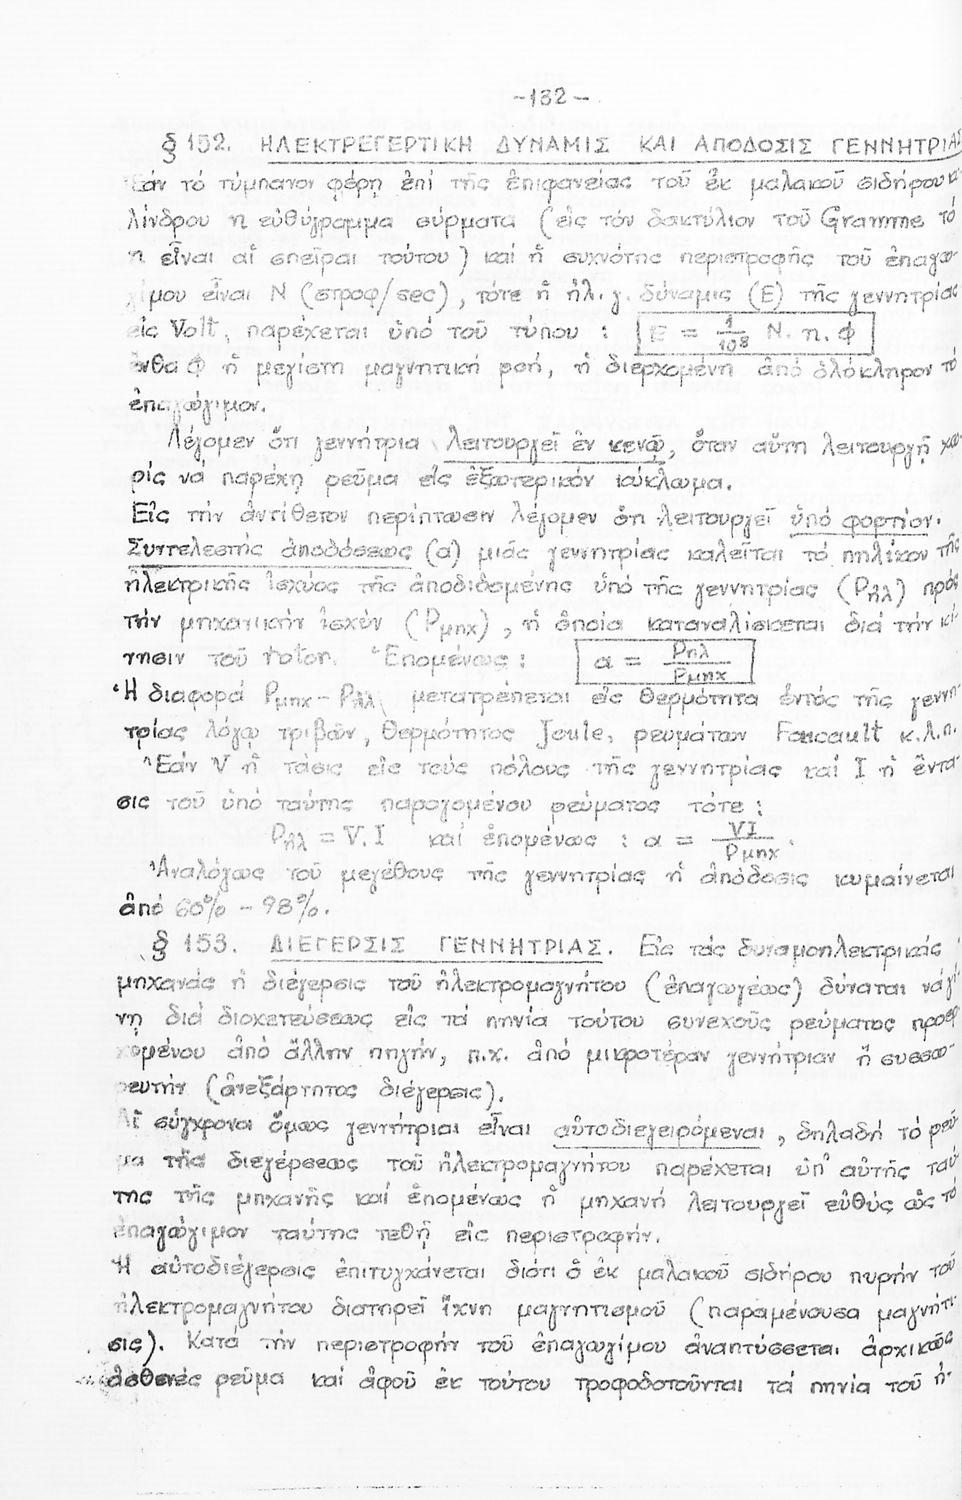 -132-
§ 152. ΗΛΕΚΤΡΕΓΕΡΤΙΚΗ ΔΥΝΑΜΙΣ ΚΑΙ ΑΠΟΔΟΣΙΣ ΓΕΝΝΗΤΡΙΑΣ
Ἐάν τό τύμπανον φέρῃ ἐπί τῆς ἐπιφανείας τοῦ ἐκ μαλακοῦ σιδήρου κυ-
λίνδρου n εὐθύγραμμα σύρματα (εἰς τόν δακτύλιον τοῦ Gramme τό
n εἶναι αἱ σπεῖραι τούτου) καί ἡ συχνότης περιστροφῆς τοῦ ἐπαγω-
γίμου εἶναι N (στροφ/sec), τότε ἡ ἠλ. γ. δύναμις (E) τῆς γεννητρίας
εἰς Volt, παρέχεται ὑπό τοῦ τύπου : E = 1/10⁸ N. n. Φ
ἔνθα Φ ἡ μεγίστη μαγνητική ροή, ἡ διερχομένη ἀπό ὁλόκληρον τό
ἐπαγώγιμον.
Λέγομεν ὅτι γεννήτρια λειτουργεῖ ἐν κενῷ, ὅταν αὕτη λειτουργῇ χω-
ρίς νά παρέχῃ ρεῦμα εἰς ἐξωτερικόν κύκλωμα.
Εἰς τήν ἀντίθετον περίπτωσιν λέγομεν ὅτι λειτουργεῖ ὑπό φορτίον.
Συντελεστής ἀποδόσεως (α) μιᾶς γεννητρίας καλεῖται τό πηλίκον τῆς
ἠλεκτρικῆς ἰσχύος τῆς ἀποδιδομένης ὑπό τῆς γεννητρίας (Pηλ) πρός
τήν μηχανικήν ἰσχύν (Pμηχ), ἡ ὁποία καταναλίσκεται διά τήν κί-
νησιν τοῦ rotor. Ἑπομένως : α = Pηλ/Pμηχ
Ἡ διαφορά Pμηχ - Pηλ μετατρέπεται εἰς θερμότητα ἐντός τῆς γεννη-
τρίας λόγῳ τριβῶν, θερμότητος Joule, ρευμάτων Foucault κ.λ.π.
Ἐάν V ἡ τάσις εἰς τούς πόλους τῆς γεννητρίας καί I ἡ ἔντα-
σις τοῦ ὑπό ταύτης παραγομένου ρεύματος τότε :
Pηλ = V.I καί ἑπομένως : α = VI/Pμηχ.
Ἀναλόγως τοῦ μεγέθους τῆς γεννητρίας ἡ ἀπόδοσις κυμαίνεται
ἀπό 60% - 98%.
§ 153. ΔΙΕΓΕΡΣΙΣ ΓΕΝΝΗΤΡΙΑΣ. Εἰς τάς δυναμοηλεκτρικάς
μηχανάς ἡ διέγερσις τοῦ ἠλεκτρομαγνήτου (ἐπαγωγέως) δύναται νά γί-
νῃ διά διοχετεύσεως εἰς τά πηνία τούτου συνεχοῦς ρεύματος προερ-
χομένου ἀπό ἄλλην πηγήν, π.χ. ἀπό μικροτέραν γεννήτριαν ἤ συσσω-
ρευτήν (ἀνεξάρτητος διέγερσις).
Αἱ σύγχρονοι ὅμως γεννήτριαι εἶναι αὐτοδιεγειρόμεναι, δηλαδή τό ρεῦ-
μα τῆς διεγέρσεως τοῦ ἠλεκτρομαγνήτου παρέχεται ὑπ' αὐτῆς ταύ-
της τῆς μηχανῆς καί ἑπομένως ἡ μηχανή λειτουργεῖ εὐθύς ὡς τό
ἐπαγώγιμον ταύτης τεθῇ εἰς περιστροφήν.
Ἡ αὐτοδιέγερσις ἐπιτυγχάνεται διότι ὁ ἐκ μαλακοῦ σιδήρου πυρήν τοῦ
ἠλεκτρομαγνήτου διατηρεῖ ἴχνη μαγνητισμοῦ (παραμένουσα μαγνήτι-
σις). Κατά τήν περιστροφήν τοῦ ἐπαγωγίμου ἀναπτύσσεται ἀρχικῶς
ἀσθενές ρεῦμα καί ἀφοῦ ἐκ τούτου τροφοδοτοῦνται τά πηνία τοῦ ἠ-